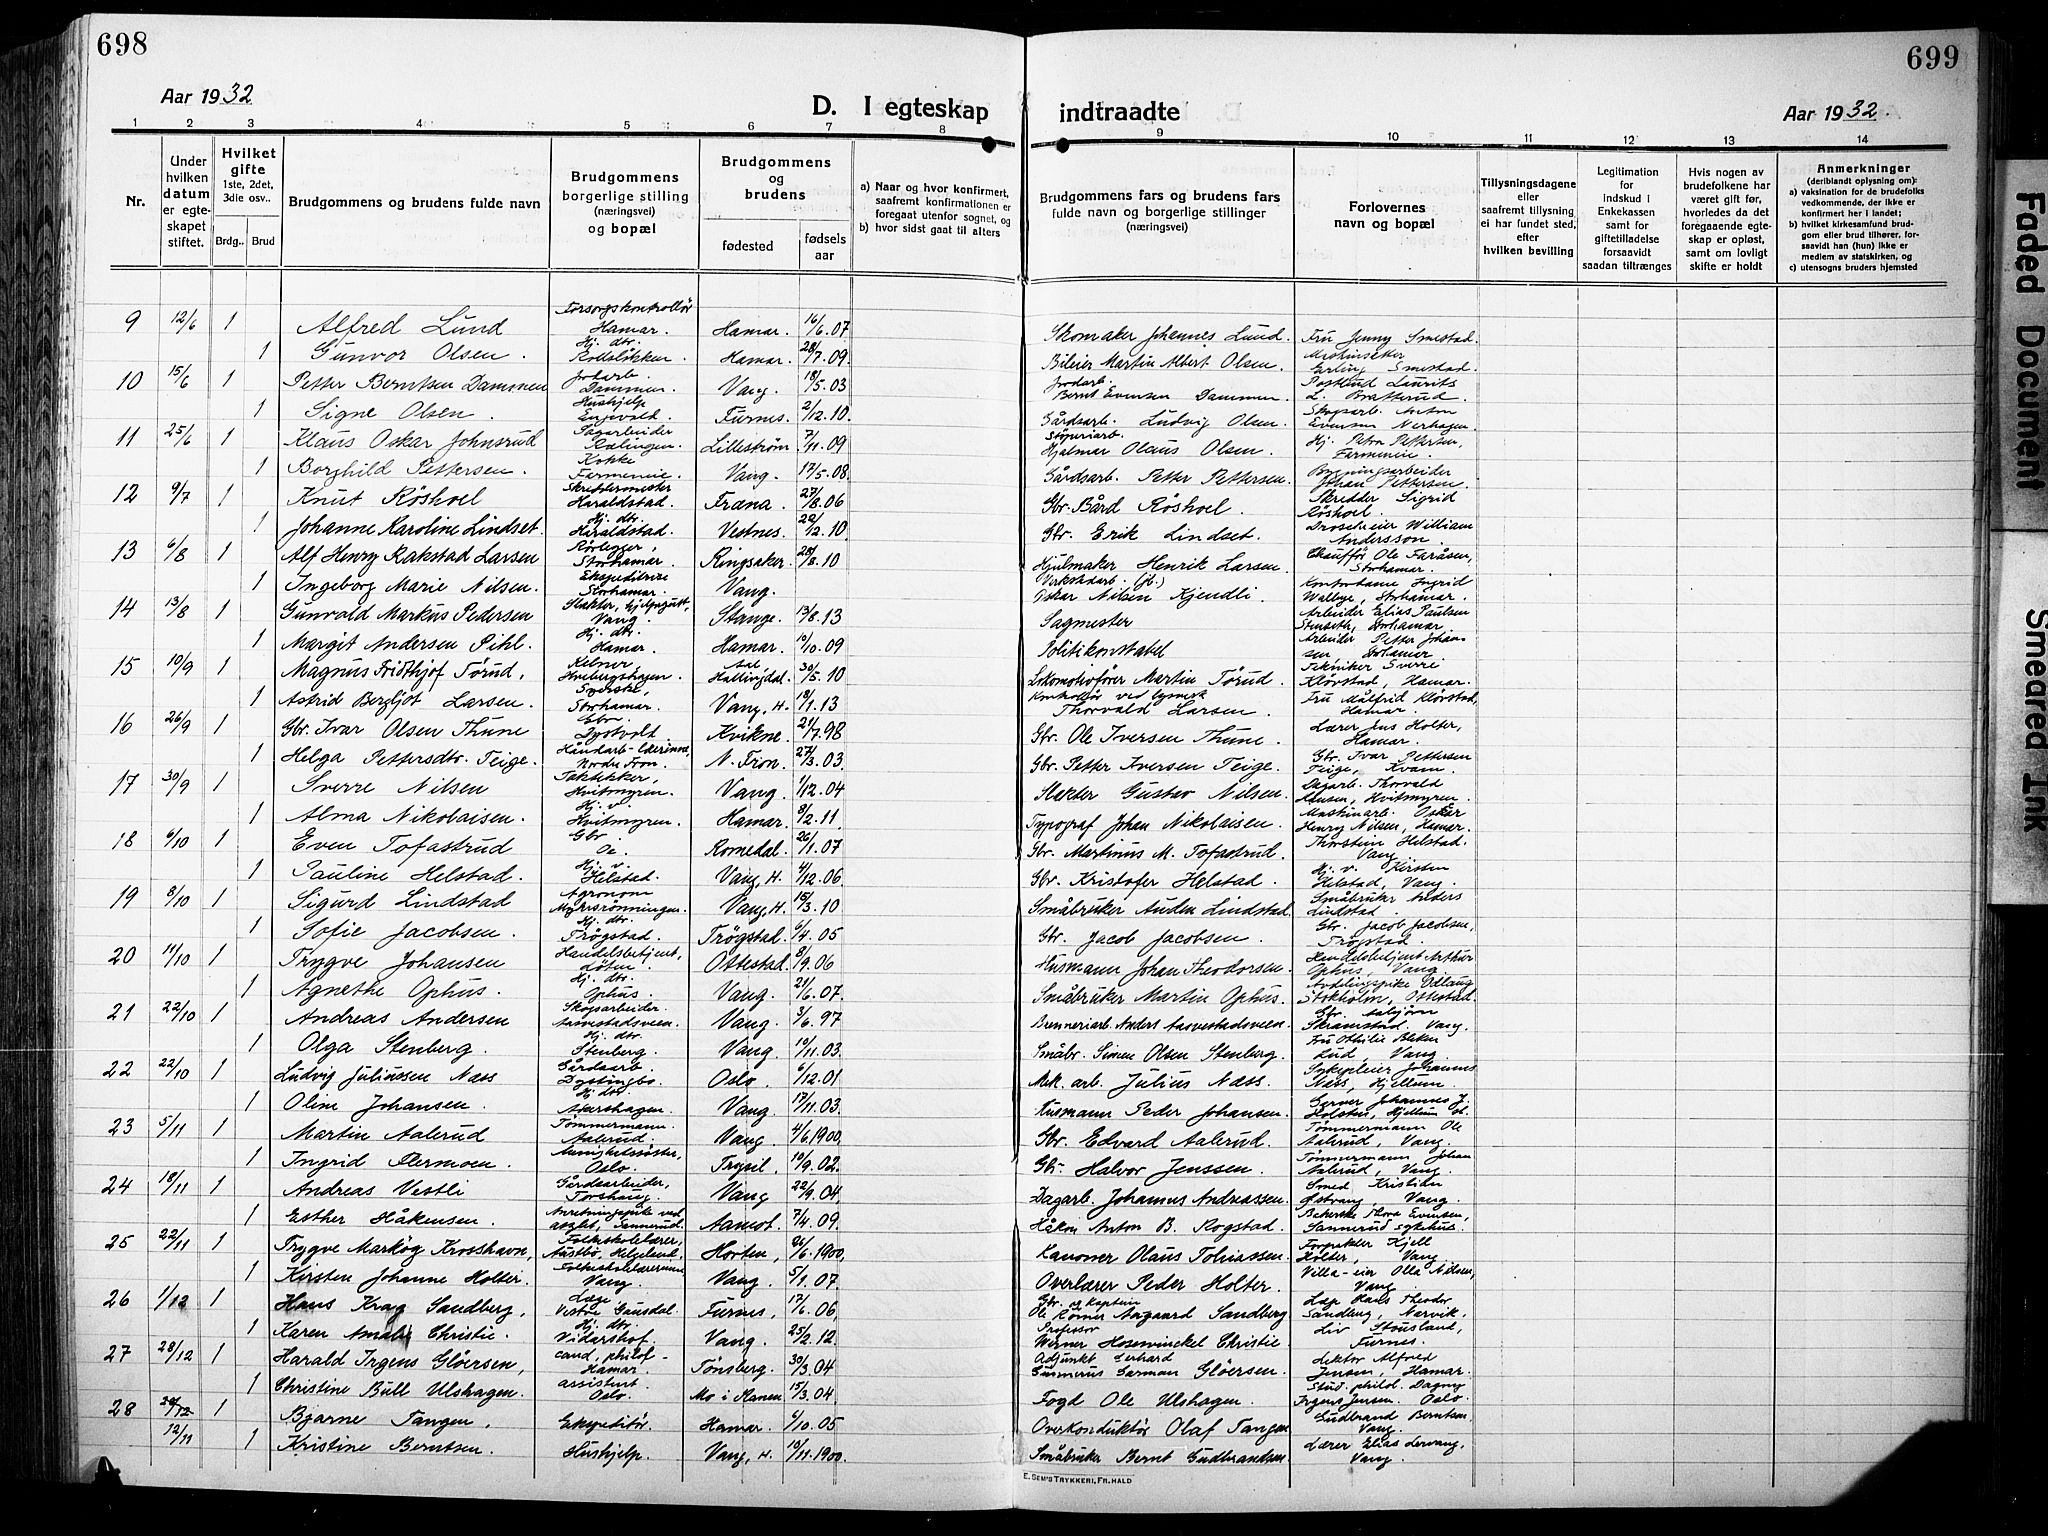 698
699
Aar 1932
D. I egteskap indtraadte
Aar 1932.
1 2 3 4 5 6 7 8 9 10 11 12 13 14
Nr.
Under hvilken datum er egteskapet stiftet.
Hvilket gifte 1ste, 2det, 3die osv..
Brdg.. Brud
Brudgommens og brudens fulde navn
Brudgommens borgerlige stilling (næringsvei) og bopæl
Brudgommens og brudens
fødested
fødsels aar
a) Naar og hvor konfirmert, saafremt konfirmationen er foregaat utenfor sognet, og
b) hvor sidst gaat til alters
Brudgommens fars og brudens fars fulde navn og borgerlige stillinger (næringsvei)
Forlovernes navn og bopæl
Tillysningsdagene eller saafremt tillysning ei har fundet sted, efter hvilken bevilling
Legitimation for Indskud i Enkekassen samt for giftetilladelse forsaavidt saadan tiltrænges
Hvis nogen av brudefolkene har været gift før, hvorledes da det foregaaende egteskap er opløst, samt om lovligt skifte er holdt
Anmerkninger (deriblandt oplysning om):
a) vaksination for de brudefolks vedkommende, der ikke er konfirmert her i landet;
b) hvilket kirkesamfund brudgom eller brud tilhører, forsaavidt han (hun) ikke er medlem av statskirken, og
c) utensogns bruders hjemsted
9 12/6 1 Alfred Lund Forsorgskontrollør Hamar. Hamar. 16/6.07 Skomaker Johannes Lund. Fru Jenny Smestad.
1 Gunvor Olsen. Hj. dtr. Hamar. 28/7.09 Bileier Martin Albert Olsen. Erling Smestad.
10 15/6 1 Petter Berntsen Dammen Jordarb. Dammen. Vang. 18/5.03 Jordarb. Bernt Evensen Dammen Postbud Laurits L. Bratterud.
1 Signe Olsen. Hushjelp Furnes. 2/12.10 Gårdsarb. Ludvig Olsen. Skogsarb. Anton Evensen Nerhagen.
11 25/6 1 Klaus Oskar Johnsrud Sagarbeider Rælingen. Lillestrøm. 7/11.09 Støperiarb. Hjalmar Olaus Olsen. Hj. Petra Pettersen,
1 Borghild Pettersen. Kokke Vang. 17/5.08 Gårdsarb. Petter Pettersen. Johan Pettersen.
12 9/7 1 Knut Röshoel Skreddermester Haraldstad. Fræna. 27/8.06 Gbr. Bård Röshoel. Skredder Sigrid Röshoel.
1 Johanne Karoline Lindset. Hj. dtr. Haraldstad. Vestnes. 22/12.10 Gbr. Erik Lindset. Droscheeier William Andersson.
13 6/8 1 Alf Henry Rakstad Larsen Rørlegger, Storhamar. Ringsaker. 28/8.10 Hjulmaker Henrik Larsen. Chauffør Ole Faråsen, Storhamar.
1 Ingeborg Marie Nilsen. Ekspeditrise Storhamar. Vang. Verkstedarb. Oskar Nilsen Kjendli. Kontordame Ingrid Walbye, Storhamar.
14 13/8 1 Gunvald Markus Pedersen Slakter, hjelpegutt, Vang. Stange. 13/8.13 Sagmester Arbeider Elias Paulsen Stenseth, Storhamar
1 Margit Andersen Pihl. Hj. dtr. Hamar. Hamar. 10/10.09 Politikonstabel Arbeider Petter Johansen, Storhamar
15 10/9 1 Magnus Fridthjof Tørud, Kelner, Aal Hallingdal. 30/5.10 Lokomotivfører Martin Tørud. Tekniker Sverre Klørstad, Hamar.
1 Astrid Bergljot Larsen. Syerske, Storhamar. Vang, H. 18/1.13 Thorvald Larsen. Fru Målfrid Klørstad, Hamar.
16 26/9 1 Gbr. Ivar Olsen Thune Gbr. Kvikne. 21/7.98 Gbr. Ole Iversen Thune. Lærer Jens Holter, Hamar.
1 Helga Pettersdtr. Teige. Håndarb-lærerinne, Nordre Fron. N. Fron. 27/3.03 Gbr. Petter Iversen Teige. Gbr. Ivar Pettersen Teige, Kvam.
17 30/9 1 Sverre Nilsen Taktekker, Hvitmyren. Vang. 1/12.04 Slakter Gustav Nilsen. Dagarb. Thorvald Hansen, Hvitmyren.
1 Alma Nikolaisen. Hj. v. Hvitmyren. Hamar. 8/2.11. Typograf Johan Nikolaisen. Maskinarb. Oskar Henry Nilsen, Hamar.
18 6/10 1 Even Tofastrud Gbr. Romedal. 26/1.07 Gbr. Martinus M. Tofastrud. Thorstein Helstad. Vang
1 Pauline Helstad. Hj. v. Helstad. Vang, H. 4/12.06 Gbr. Kristofer Helstad. Hj. v. Kirsten Helstad, Vang.
19 8/10 1 Sigurd Lindstad Agronom Vang, H. 15/3.10 Småbruker Auden Lindstad. Småbruker Anders Lindstad.
1 Sofie Jacobsen. Hj. dtr. Trøgstad. Trøgstad. 6/4.05 Gbr. Jacob Jacobsen. Gbr. Jacob Jacobsen, Trøgstad.
20 11/10 1 Trygve Johansen Handelsbetjent, Løten. Ottestad. 8/9.06 Husmann Johan Theodorsen. Handelsbetjent Arthur Ophus, Vang.
1 Agnethe Ophus. Hj. dtr. Ophus. Vang. 21/6.07. Småbruker Martin Ophus. Avdelingspike Odlaug Stokholm, Ottestad.
21 22/10 1 Andreas Andersen Skogsarbeider Aasvestadsveen. Vang. 3/6.97 Brenneriarb. Anders Aasvestadsveen. Gbr. Asbjørn Skramstad. Vang.
1 Olga Stenberg. Hj. dtr. Stenberg. Vang. 10/11.03. Småbr. Simen Olsen Stenberg. Fru Othilie Bleken Lud, Vang.
22 22/10 1 Ludvig Juliussen Næss Gårdsarb. Dystingbo. Oslo. 6/12.01 Msk. arb. Julius Næss. Sykepleier Johannes Næss, Hjellum.
1 Oline Johansen. Hj. dtr. Akershagen. Vang. 17/11.03. Husmann Peder Johansen. Garver Johannes J. Holstad, Hjellum st.
23 5/11 1 Martin Aalerud Tømmermann. Aalerud. Vang. 4/6 1900. Gbr. Edvard Aalerud. Tømmermann Ole Aalerud, Vang.
1 Ingrid Flermoen. Menighetssøster, Oslo. Trysil. 10/9.02. Gbr. Halvor Jenssen. Tømmermann Johan Aalerud, Vang.
24 18/11 1 Andreas Vestli Gårdsarbeider, Torshaug. Vang 22/9.04. Dagarb. Johannes Andreassen. Smed Kristian Østvang, Vang.
1 Esther Håkensen. Anretningspike ved asylet, Sannerud. Aamot. 7/4.09. Håkon Anton B. Rogstad. Bokerske Thora Evensen, Sannerud sykehus.
25 22/11 1 Trygve Markög Krosshavn, Folkeskolelærer, Austbø, Helgeland. Horten, 26/6.1900, Kanoner Olaus Tobiassen. Forpakter Kjell Holter, Vang.
1 Kirsten Johanne Holter. Folkeskolelærerinne Vang. Vang. 5/1.07. Overlærer Peder Holter. Villa-eier Olla Nilsen, Vang
26 1/12 1 Hans Krag Sandberg, Læge, Vestre Gausdal. Furnes, 17/6.06, Gbr. og kaptein Ole Römer Aagaard Sandberg Læge Hans Theodor Sandberg, Narvik.
1 Karen Amalie Christie. Hj. dtr. Vidarshof. Vang. 25/2.12. Professor Werner Hosewinckel Christie. Liv Stousland, Furnes.
27 28/12 1 Harald Irgens Glöersen, cand. philol- Hamar. Tønsberg. 30/3.04 Adjunkt Gerhard Gunnerus Sarman Glöersen. Lektor Alfred Jensen, Hamar.
1 Christine Büll Ulshagen. assistent. Oslo. Mo i Ranen 15/3.04 Fogd Ole Ulshagen. Stud. philol. Dagny Irgens Jensen. Oslo.
28 28/12 12/11 1 Bjarne Tangen, Ekspeditør. Hamar. 6/10.05 Overkonduktör Olaf Tangen Gudbrand Berntsen, Vang.
1 Kristine Berntsen. Hushjelp. Vang, H. 10/11.1900. Småbruker Bernt Gudbrandsen. Lærer Elias Lervang, Vang.
E. SEM'S TRYKKERI, FR.HALD
Faded Document
Smeared Ink